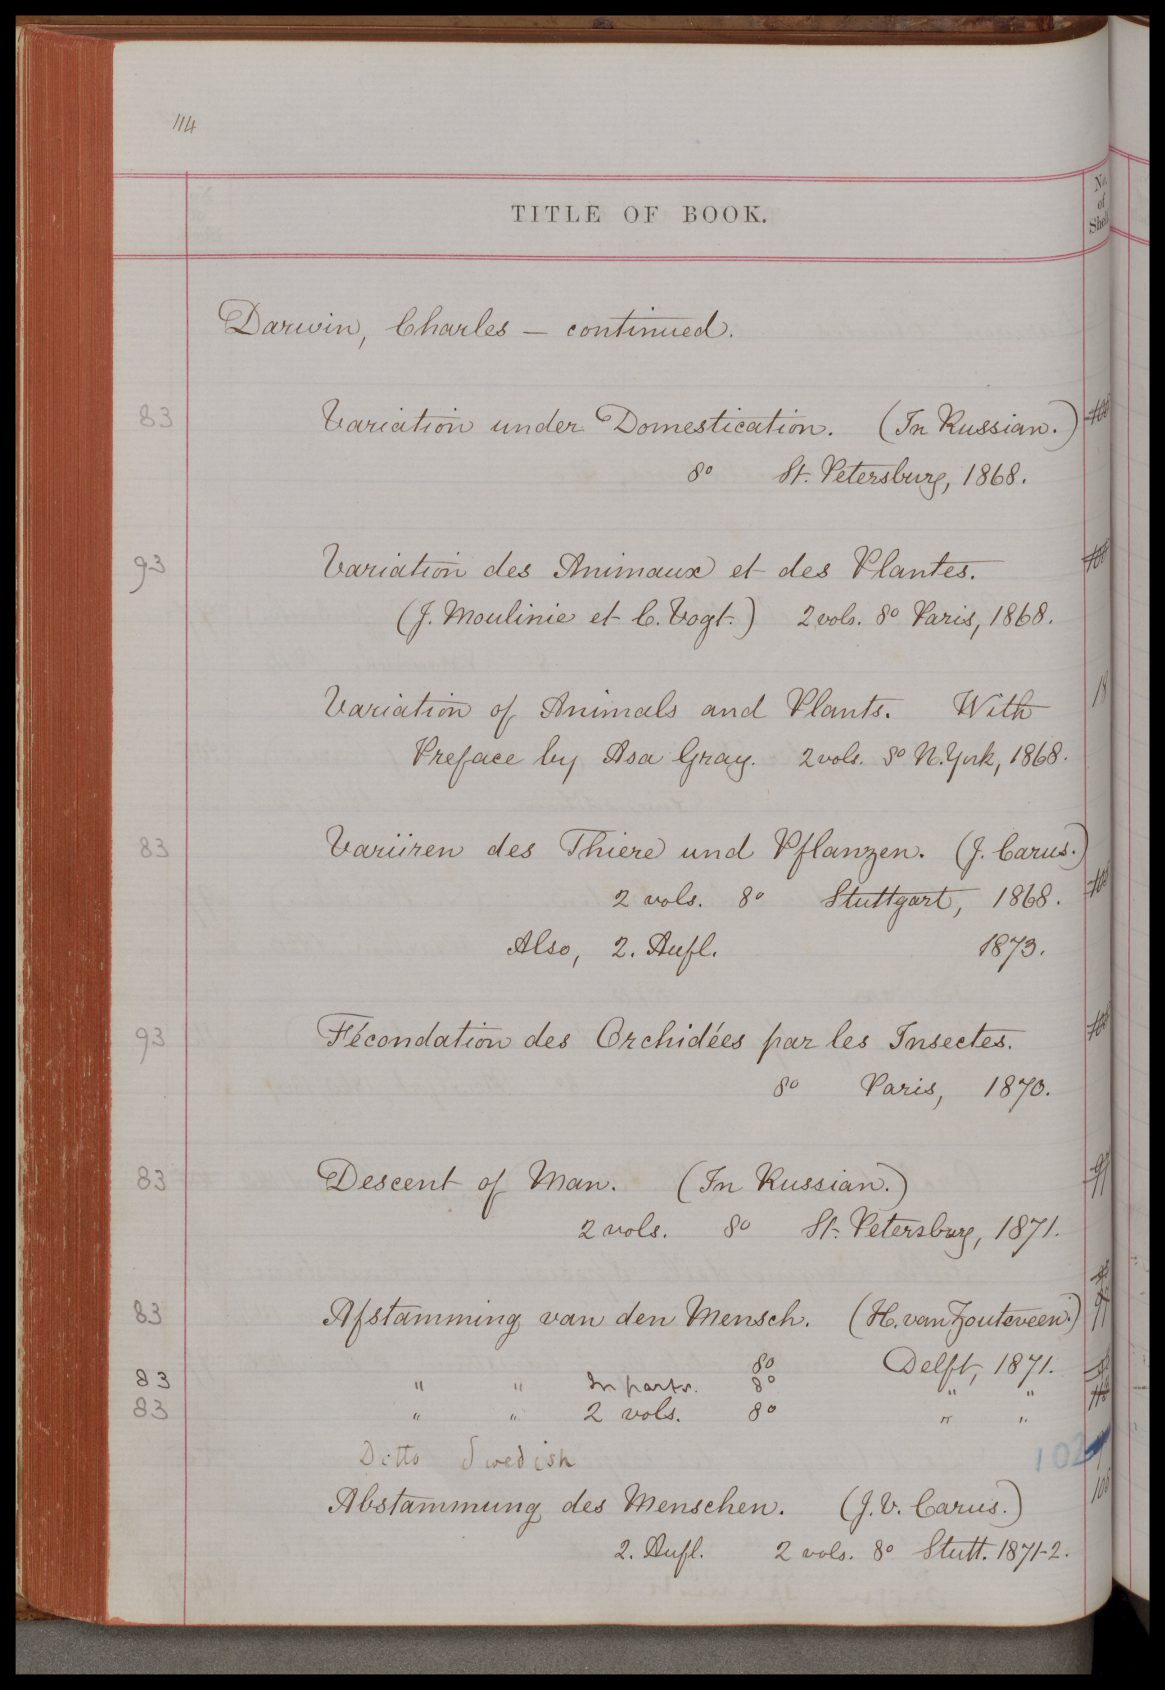 114
TITLE OF BOOK.
No. of Shelf
Darwin, Charles — continued.
83 Variation under Domestication. (In Russian.)
8o St. Petersburg, 1868.
93 Variation des Animaux et des Plantes.
(J. Moulinie et C. Vogt.) 2 vols. 8o Paris, 1868.
Variation of Animals and Plants. With
Preface by Asa Gray. 2 vols. 8o N. York, 1868.
83 Variiren des Thiere und Pflanzen. (J. Carus.)
2 vols. 8o Stuttgart, 1868.
Also, 2. Aufl. 1873.
93 Fécondation des Orchidées par les Insectes.
8o Paris, 1870.
83 Descent of Man. (In Russian.)
2 vols. 8o St. Petersburg, 1871.
83 Afstamming van den Mensch. (H. van Zouteveen.)
8o Delft, 1871.
83 " " In parts. 8o " "
83 " " 2 vols. 8o " "
Ditto Swedish 102
Abstammung des Menschen. (J. V. Carus.)
2. Aufl. 2 vols. 8o Stutt. 1871-2.